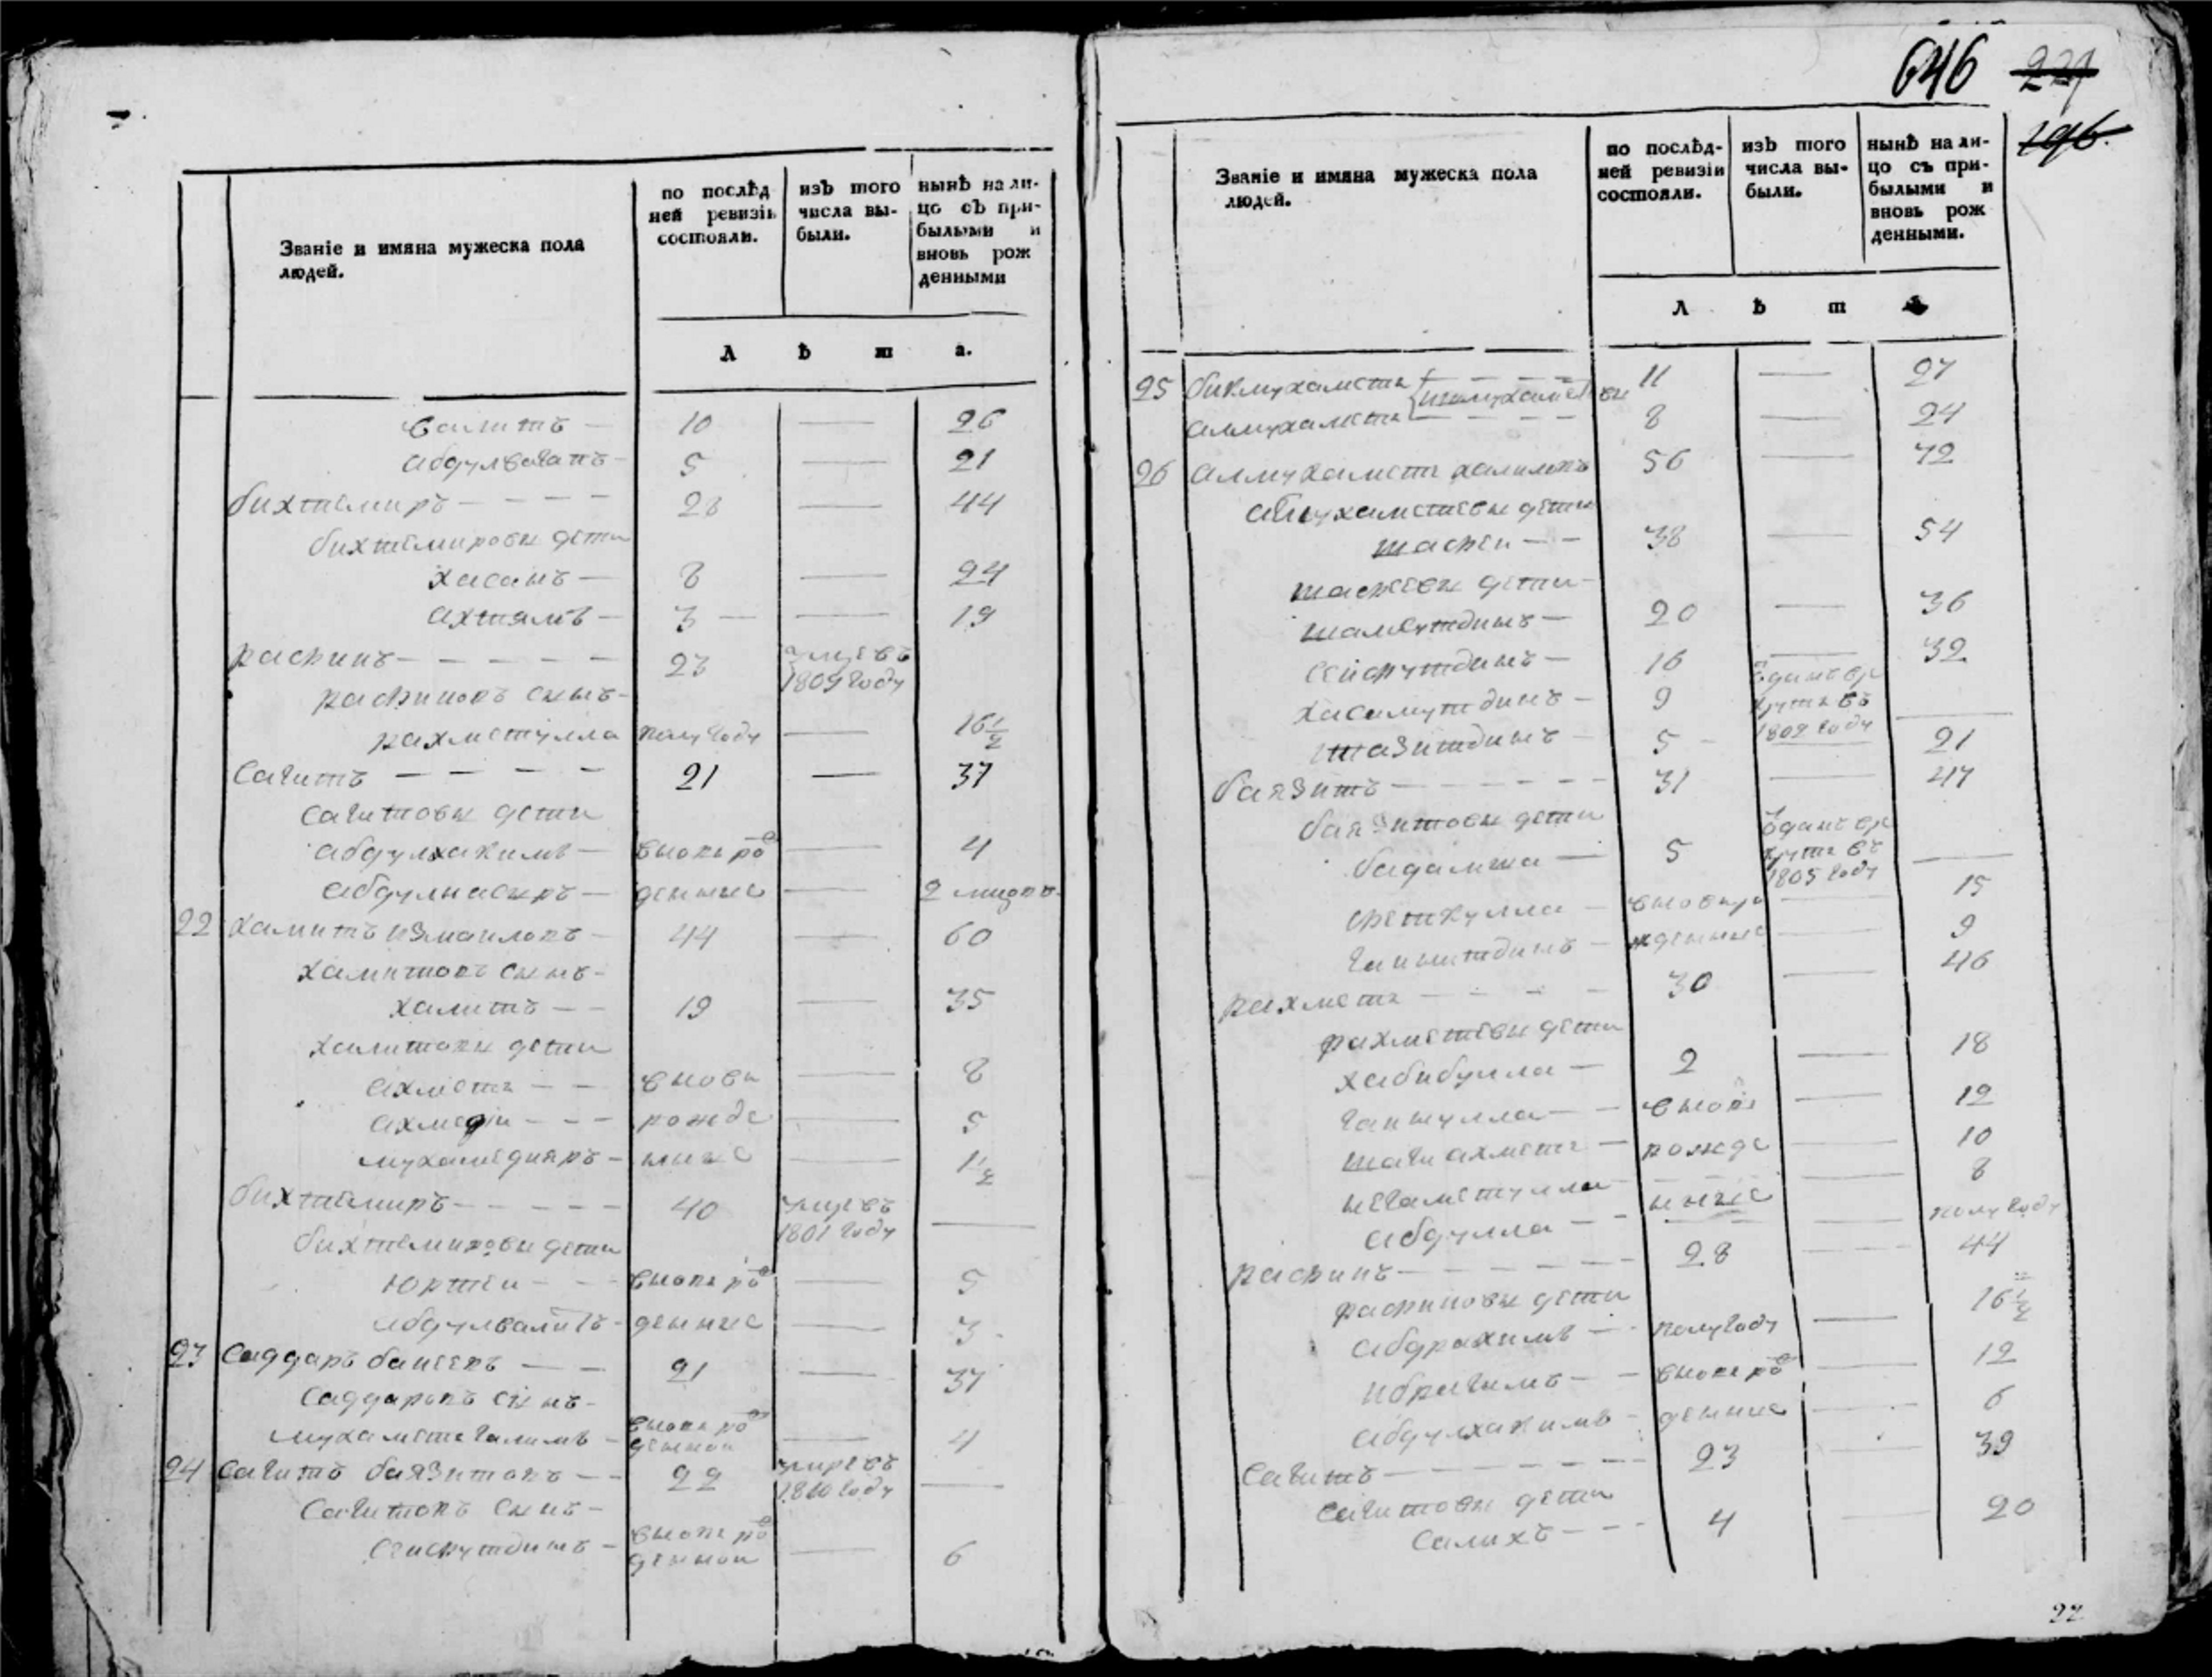 Званіе и имяна мужеска пола людей.
по послѣд ней ревизіи состояли.
изъ того числа вы- были.
нынѣ на ли- цо съ при- былыми и вновь рож денными
Л ѣ т а.
валитъ — 10 — 26
абдулвагапъ — 5 — 21
бихтемиръ — — — — 28 — 44
бихтемировы дети
хасанъ — 8 — 24
ахтямъ — 3 — — 19
рафикъ — — — — — 23 умре въ 1809 году
рафиковъ сынъ —
рахметулла полугоду — 16 1/2
сагитъ — — — — 21 — 37
сагитовы дети
абдулхакимъ — вновь ро — 4
абдулнасыръ — денные — 2 месец.
22 хамитъ измаиловъ — 44 — 60
хамитовъ сынъ —
халитъ — — 19 — 35
халитовы дети
ахметъ — — вновь — 8
ахмеди — — — рожде — 5
мухамедияръ — нные — 1 1/2
бихтемиръ — — — — — 40 умре въ 1801 году —
бихтемировы дети
юртеи — — — вновь ро — 5
абдулвалитъ — денные — 3
23 саддаръ баисевъ — — 21 — 37
саддаровъ сынъ —
мухаметъ галимъ — вновь ро денной — 4
24 сагитъ баязитовъ — — 22 умре въ 1810 году —
сагитовъ сынъ —
сеифутдинъ — вновь ро денной — 6
646 227
296.
Званіе и имяна мужеска пола людей.
по послѣд- ней ревизіи состояли.
изъ того числа вы- были.
нынѣ на ли- цо съ при- былыми и вновь рож денными.
Л ѣ т а
25 бикмухаметъ — — — — 11 — 27
ишмухаметевы
алмухаметъ — — — — 8 — 24
26 алмухаметъ халиловъ 56 — 72
алмухаметевы дети
шафеи — — 38 — 54
шафеевы дети —
шамсутдинъ — 20 — 36
сейфутдинъ — 16 — 32
хасамутдинъ — 9 зданъ въ рекруты въ 1809 году —
тазитдинъ — 5 — — 21
баязитъ — — — — — 31 — 47
баязитовы дети
бадамша — 5 зданъ въ рекруты въ 1805 году —
феткулла — вновь ро — 15
гайнитдинъ — жденные — 9
рахметъ — — — — 30 — 46
рахметевы дети
хабибулла — 2 — 18
гайнулла — — вновь — 12
шагиахметъ — рожде — 10
негаметулла — — 8
абдулла — — нные — полугоду
рафикъ — — — — — — 28 — 44
рафиковы дети
абдрахимъ — — полугоду — 16 1/2
ибрагимъ — — вновь ро — 12
абдулхакимъ — денные — 6
сагитъ — — — — — — 23 — 39
сагитовы дети
салихъ — — — 4 — 20
22